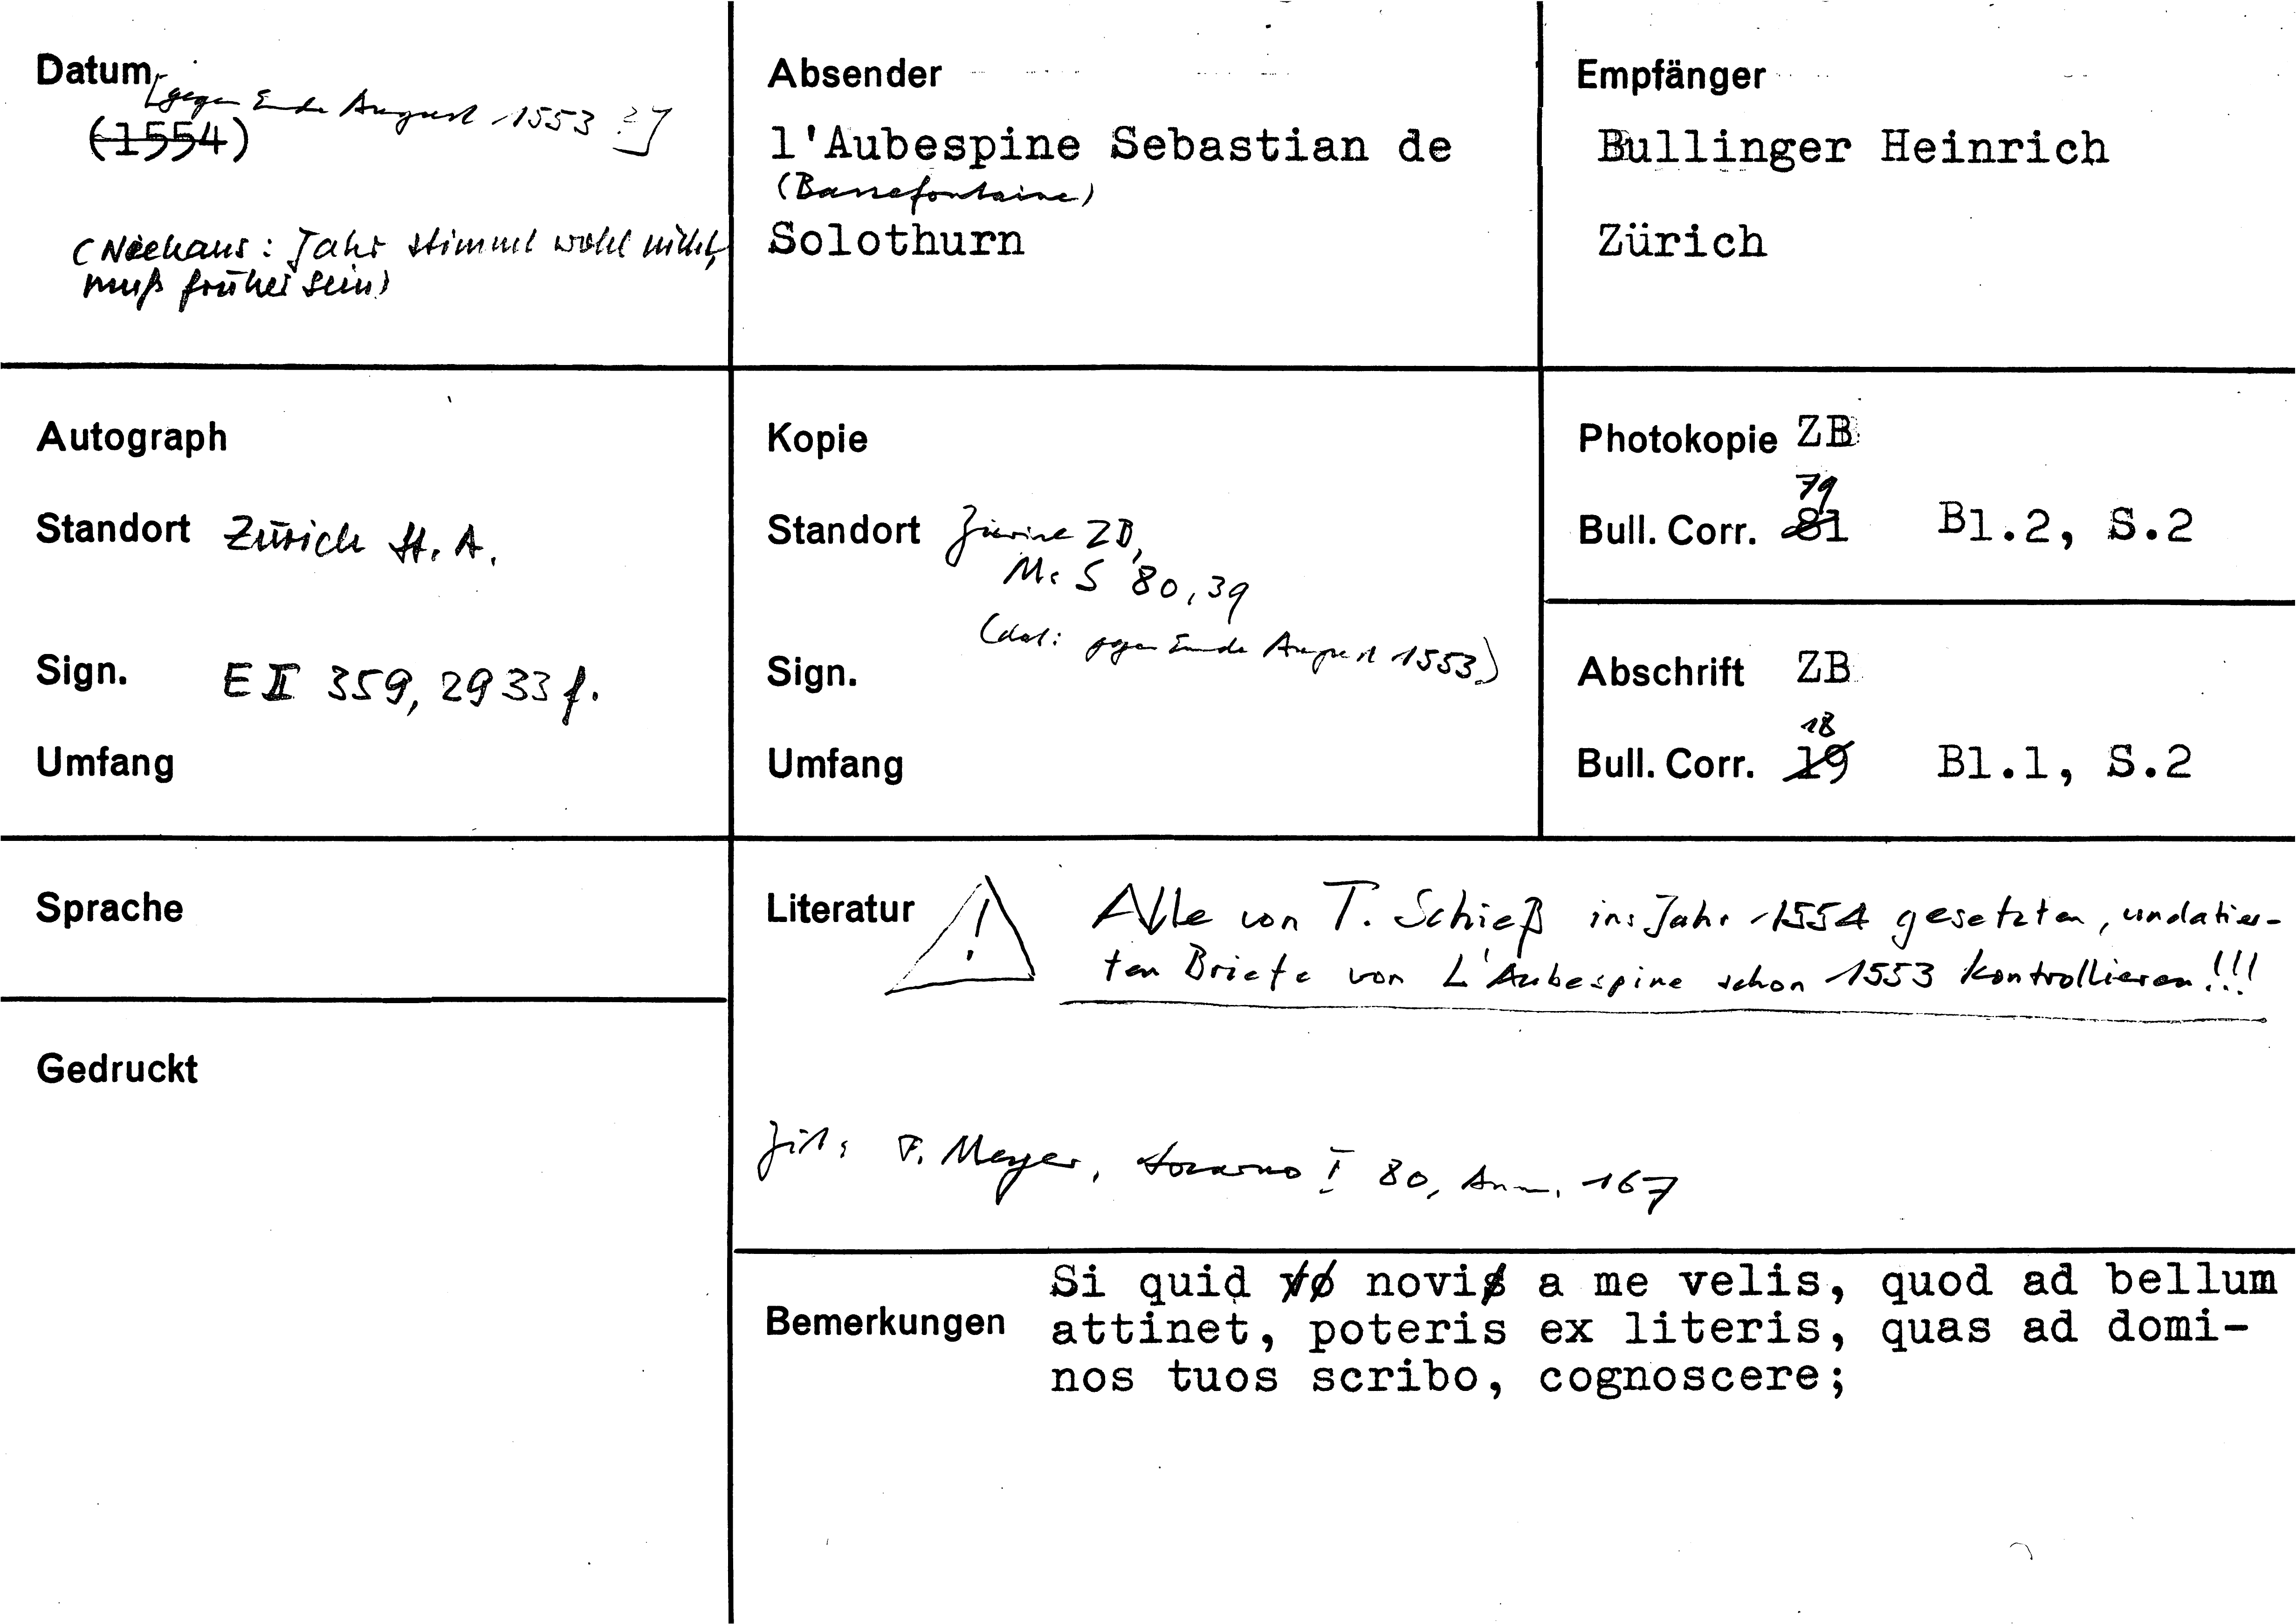 Datum
[gegen Ende August 1553 ?]
(1554)
(Niehaus: Jahr stimmt wohl nicht,
muß früher sein)
Absender
l'Aubespine Sebastian de
(Bassefontaine)
Solothurn
Empfänger
Bullinger Heinrich
Zürich
Autograph
Standort Zürich St. A.
Sign. E II 359, 2933 f.
Umfang
Kopie
Standort Zürich ZB,
Ms S 80, 39
(dat: gegen Ende August 1553)
Sign.
Umfang
Photokopie ZB
79
Bull. Corr. 81 Bl.2, S.2
Abschrift ZB
18
Bull. Corr. 19 Bl.1, S.2
Sprache
Gedruckt
Literatur
! Alle von T. Schieß ins Jahr 1554 gesetzten, undatier-
ten Briefe von L'Aubespine schon 1553 kontrollieren!!!
Zit: F. Meyer, Locarno I 80, Anm. 167
Bemerkungen
Si quid novi a me velis, quod ad bellum
attinet, poteris ex literis, quas ad domi-
nos tuos scribo, cognoscere;